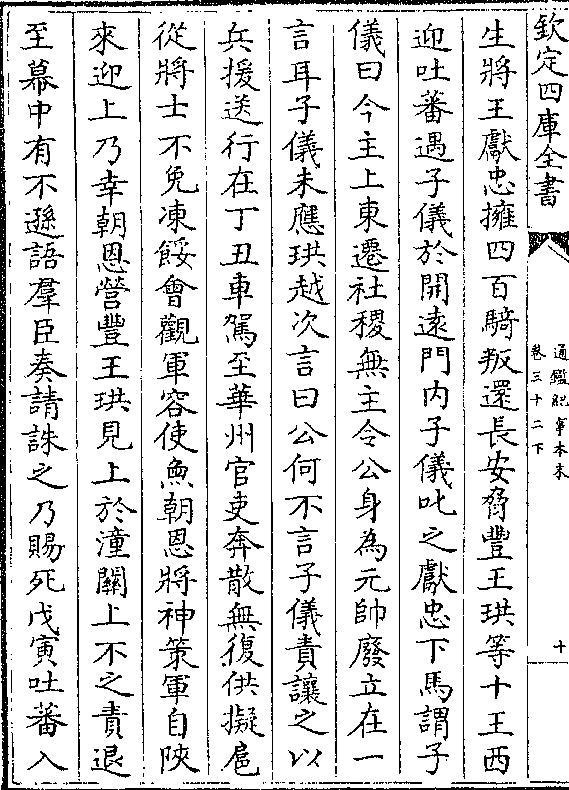 欽定四庫全書
通鑑紀事本末
卷三十二下
十
生將王獻忠擁四百騎叛還長安脅豐王珙等十王西
迎吐蕃遇子儀於開遠門内子儀叱之獻忠下馬謂子
儀曰今主上東遷社稷無主令公身為元帥廢立在一
言耳子儀未應珙越次言曰公何不言子儀責讓之以
兵援送行在丁丑車駕至華州官吏奔散無復供擬扈
從將士不免凍餒會觀軍容使魚朝恩將神策軍自陜
來迎上乃幸朝恩營豐王珙見上於潼關上不之責退
至幕中有不遜語羣臣奏請誅之乃賜死戊寅吐蕃入